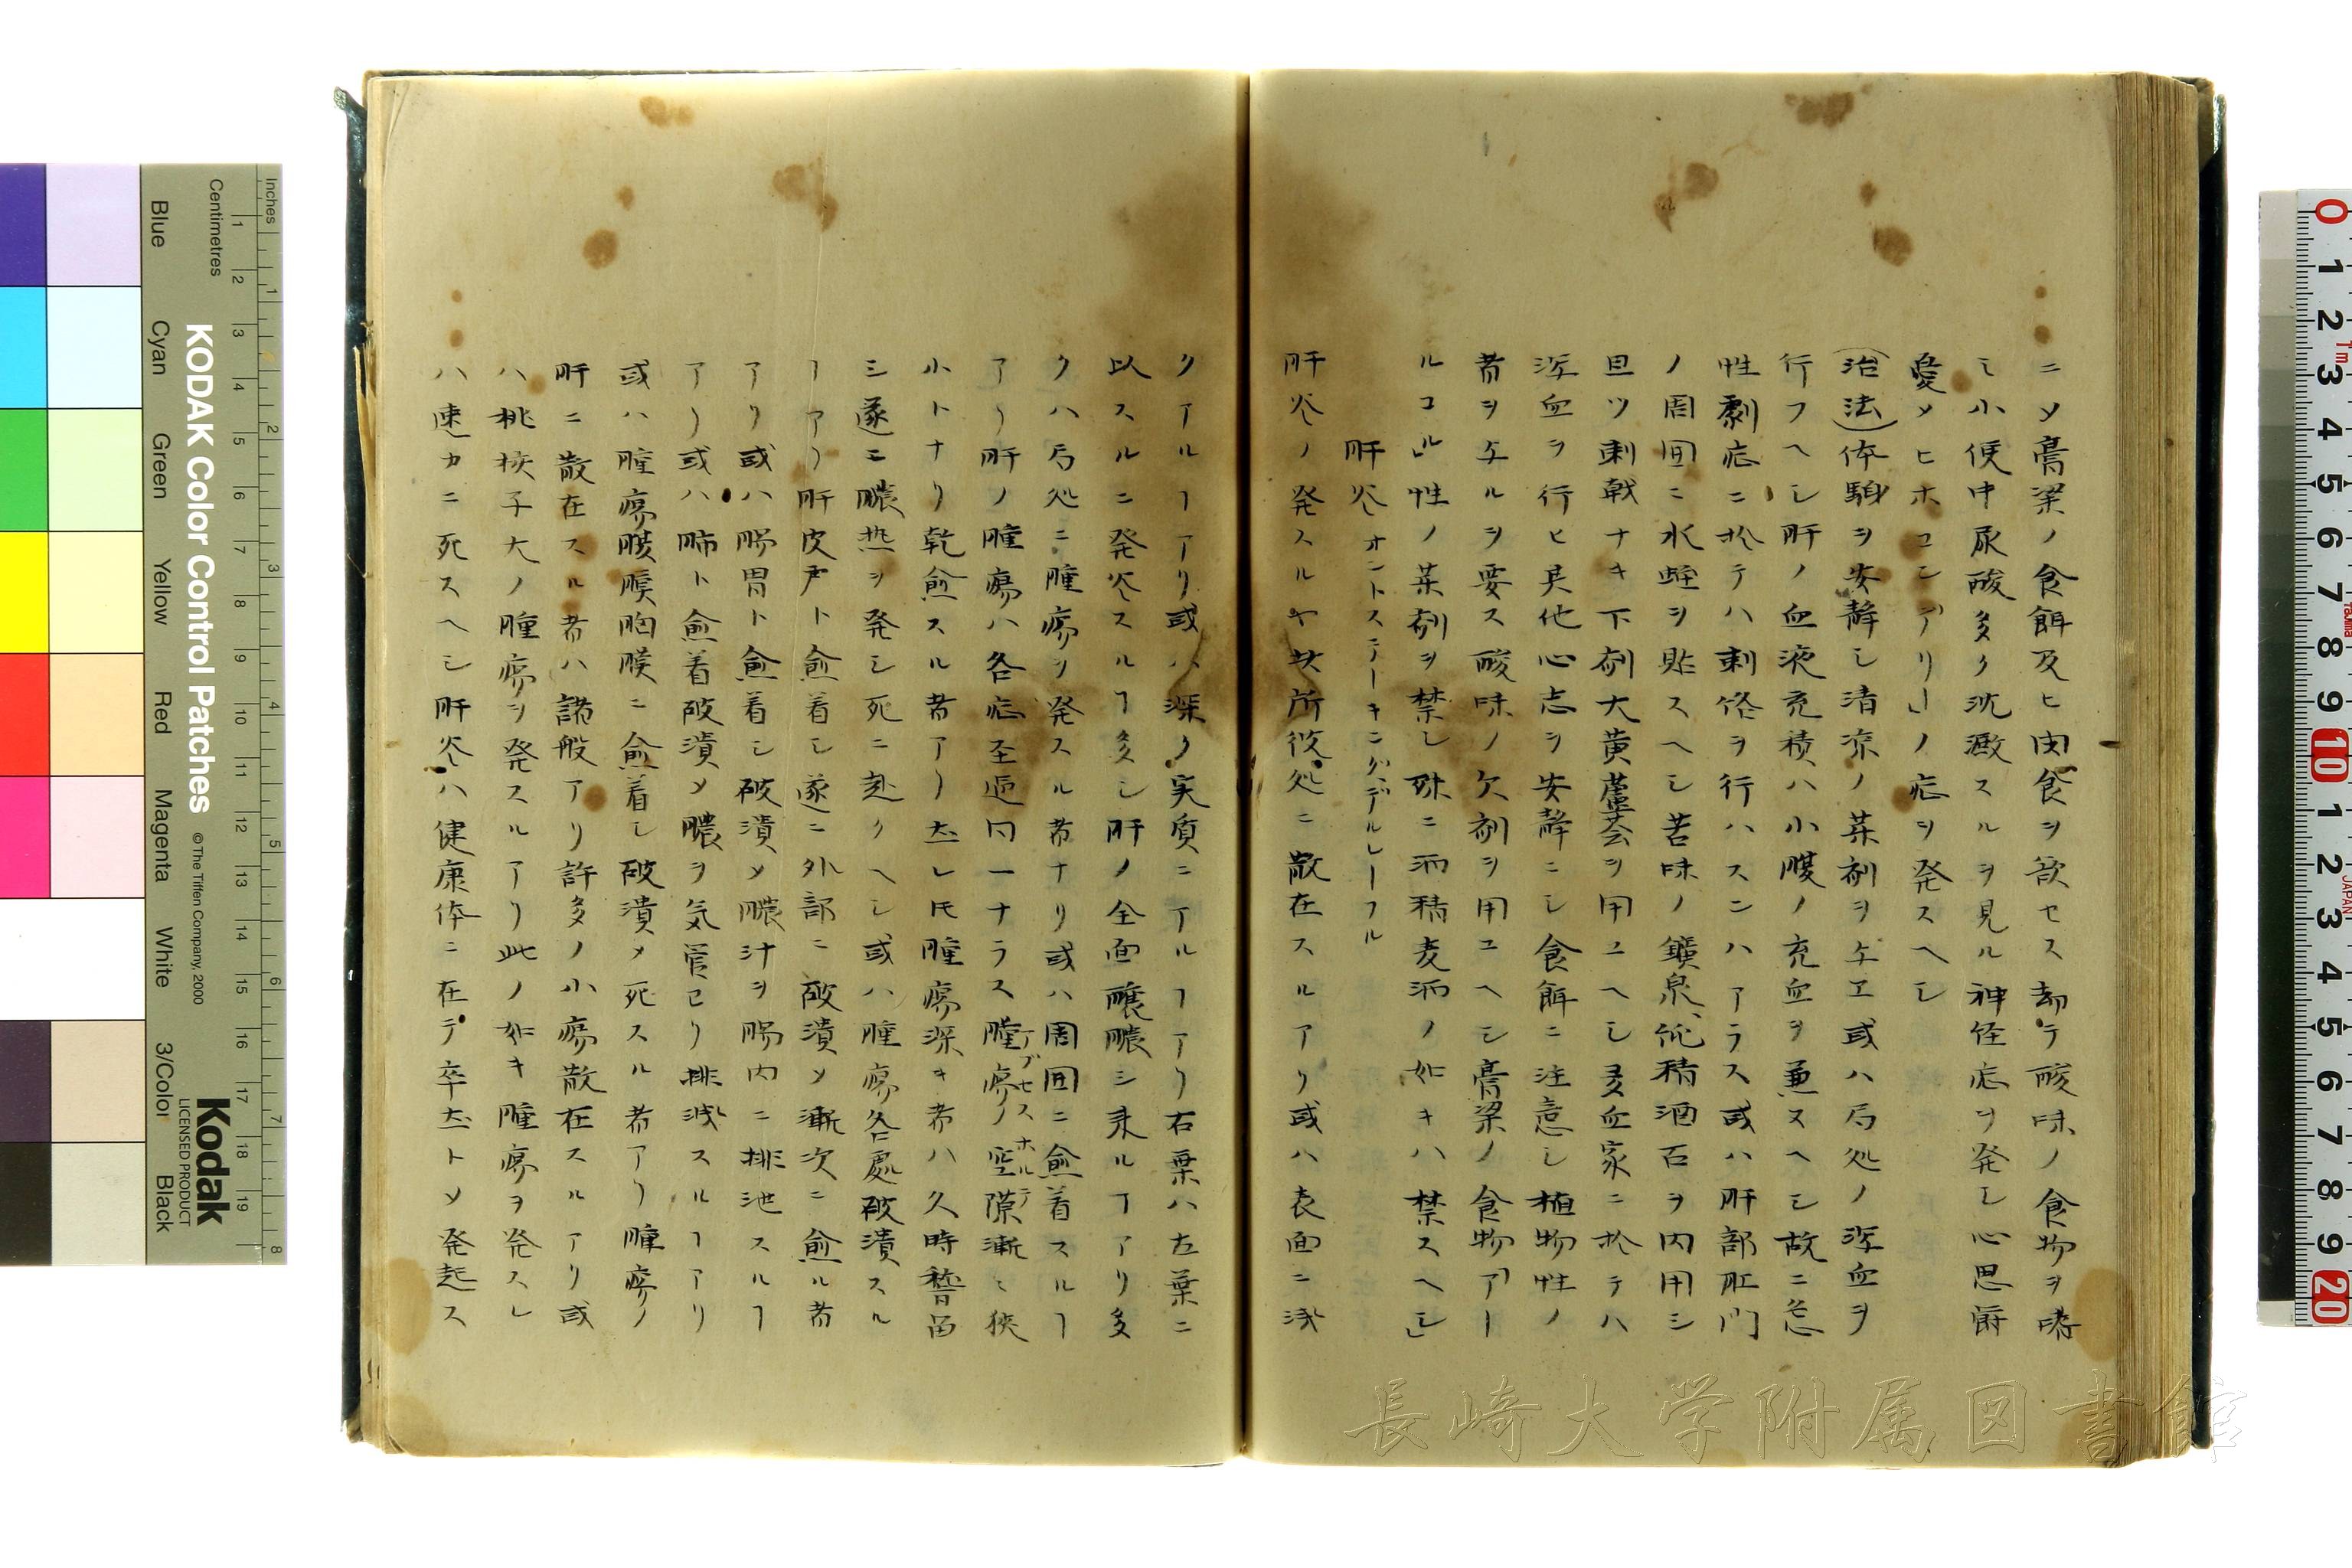 ニメ膏梁ノ食餌及ヒ肉食ヲ欲セス却テ酸味ノ食物ヲ嗜
ミ小便中尿酸多ク沈澱スルヲ見ル神経症ヲ発し心思欝
憂メヒホコンデアリ」ノ症ヲ発スヘし
(治法)体軀ヲ安静し清涼ノ薬剤ヲ与エ或ハ局処ノ瀉血ヲ
行フヘし肝ノ血液充積ハ小腹ノ充血ヲ兼スヘし故ニ急
性劇症ニ於テハ刺絡ヲ行ハスンハアラス或ハ肝部肛門
ノ周囲ニ水蛭ヲ貼スヘし苦味ノ鑛泉、酒石ヲ内用シ
且ツ刺戟ナキ下剤大黄蘆薈ヲ用ユヘし多血家ニ於テハ
瀉血ヲ行ヒ其他心志ヲ安静ニし食餌ニ注意し植物性ノ
者ヲ与ルヲ要ス酸味ノ欠剤ヲ用ユヘし膏梁ノ食物アー
ルコル」性ノ薬剤ヲ禁し殊ニ洒精麦洒ノ如キハ禁スヘし」
肝炎オントステーキニングデルレーフル
肝炎ノ発スルヤ其所彼処ニ散在スルアリ或ハ表面ニ浅
クアルヿアリ或ハ深ク実質ニアルヿアリ右葉ハ左葉ニ
以スルニ発炎スルヿ多し肝ノ全面醸膿シ来ルヿアリ多
クハ局処ニ腫瘍ヲ発スル者ナリ或ハ周囲ニ愈着スルヿ
アリ肝ノ腫瘍ハ各症至適同一ナラス腫瘍ノ空隙漸ミ狭
アブセスホルテ
小トナリ乾愈スル者アリ左レ𪜈腫瘍深キ者ハ久時稽留
シ遂エ膿熱ヲ発し死ニ赴クヘし或ハ腫瘍各處破潰スル
ヿアリ肝皮ト愈着し遂ニ外部ニ破潰メ漸次ニ愈ル者
アリ或ハ腸胃ト愈着し破潰メ膿汁ヲ腸内ニ排泄スルヿ
アリ或ハ肺ト愈着破潰メ膿ヲ気管ヨリ排泄スルヿアリ
或ハ腫瘍腹膜胸膜ニ愈着し破潰メ死スル者アリ腫瘍ノ
肝ニ散在スル者ハ諸般アリ許多ノ小瘍散在スルアリ或
ハ桃核子大ノ腫瘍ヲ発スルアリ此ノ如キ腫瘍ヲ発スレ
ハ速カニ死スヘし肝炎ハ健康体ニ在テ卒左トメ発起ス
長崎大学附属図書館
KODAK Color Control Patches
©The Tiffen Company, 2000
Kodak
LICENSED PRODUCT
Inches
Centimetres
Blue Cyan Green Yellow Red Magenta White 3/Color Black
1 2 3 4 5 6 7 8 9 10 11 12 13 14 15 16 17 18 19
1 2 3 4 5 6 7 8
0 1 2 3 4 5 6 7 8 9 10 1 2 3 4 5 6 7 8 9 20
JAPAN